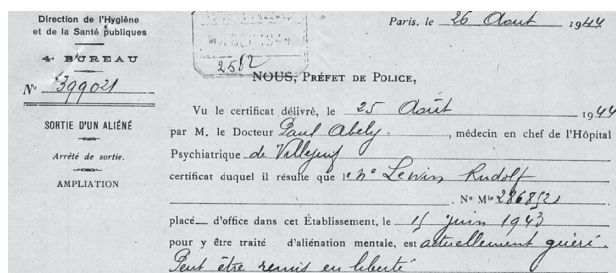 Direction de l'Hygiène
et de la Santé publiques
4e BUREAU
No 399021
SORTIE D'UN ALIÉNÉ
Arrêté de sortie.
AMPLIATION
Paris, le 26 Août 1944
2582
NOUS, PRÉFET DE POLICE,
Vu le certificat délivré, le 25 Août 1944
par M. le Docteur Paul Abély, médecin en chef de l'Hôpital
Psychiatrique de Villejuif
certificat duquel il résulte que le Lewin Rudolf
No Mle
placé d'office dans cet Établissement, le juin 1943
pour y être traité d'aliénation mentale, est actuellement guéri.
Peut être remis en liberté